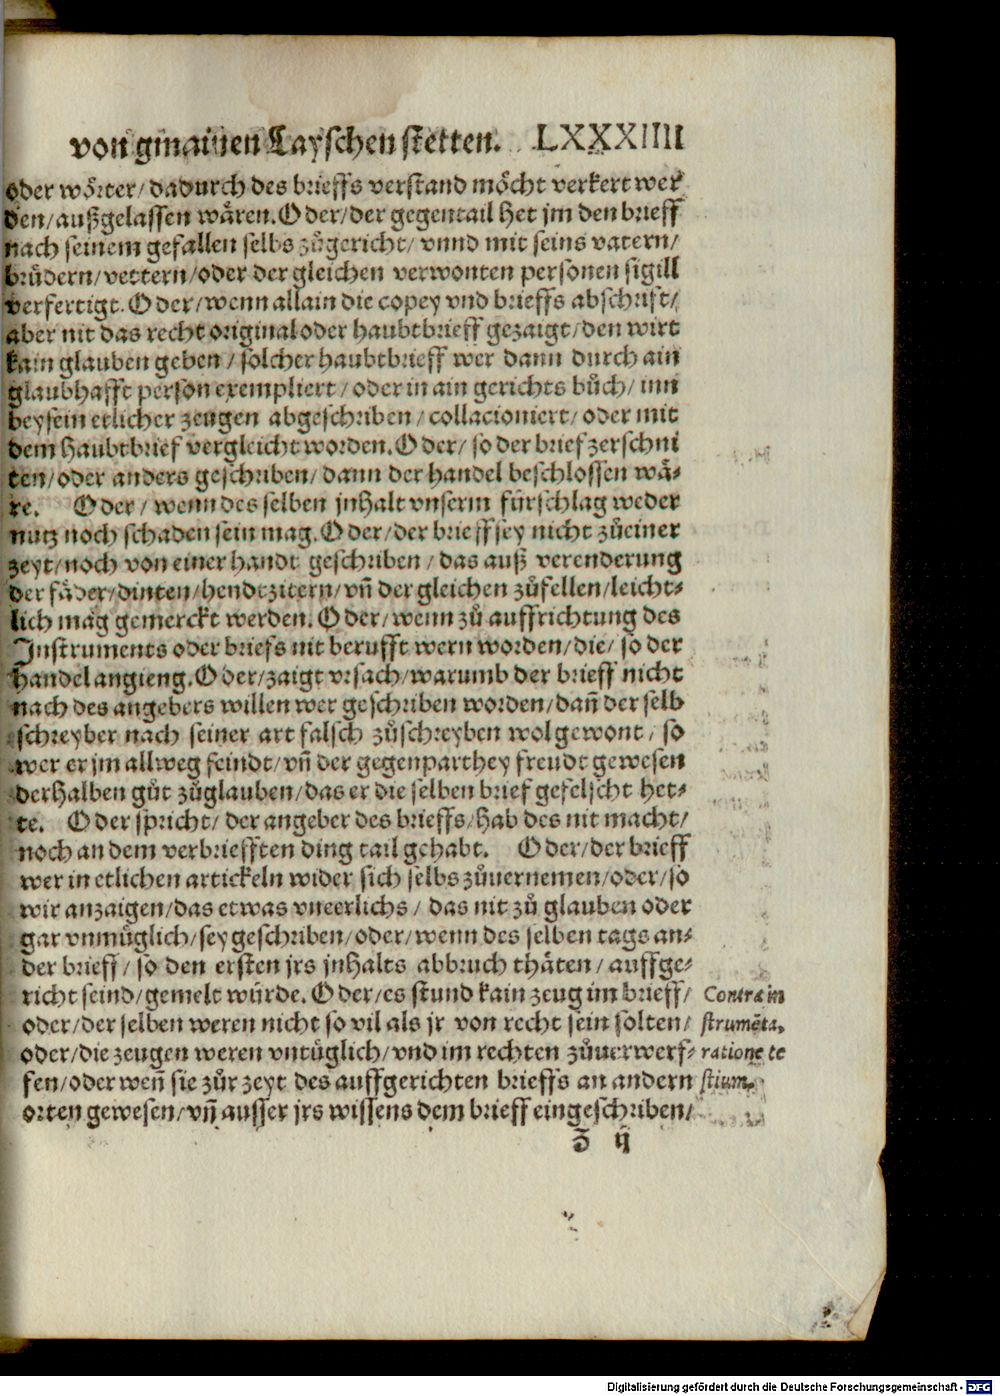 von gmainen Layschen stetten. LXXXIIII
oder wörter/ dadurch des brieffs verstand möcht verkert wer
den/ außgelassen wären. Oder/ der gegentail het jm den brieff
nach seinem gefallen selbs zůgericht/ vnnd mit seins vatern/
brüdern/ vettern/ oder der gleichen verwonten personen sigill
verfertigt. Oder/ wenn allain die copey vnd brieffs abschrift/
aber nit das recht original oder haubtbrieff gezaigt/ den wirt
kain glauben geben/ solcher haubtbrieff wer dann durch ain
glaubhafft person exempliert/ oder in ain gerichts bůch/ inn
beysein etlicher zeugen abgeschriben/ collacioniert/ oder mit
dem haubtbrief vergleicht worden. Oder/ so der brief zerschni
ten/ oder anders geschriben/ dann der handel beschlossen wä-
re. Oder/ wenn des selben jnhalt vnserm fürschlag weder
nutz noch schaden sein mag. Oder/ der brieff sey nicht zů einer
zeyt/ noch von einer handt geschriben/ das auß verenderung
der fäder/ dinten/ hendtzitern/ vñ der gleichen zůfellen/ leicht-
lich mag gemerckt werden. Oder/ wenn zů auffrichtung des
Instruments oder briefs nit berufft wern worden/ die/ so der
handel angieng. Oder/ zaigt vrsach/ warumb der brieff nicht
nach des angebers willen wer geschriben worden/ dañ der selb
schreyber nach seiner art falsch zůschreyben wol gewont/ so
wer er jm allweg feindt/ vñ der gegenparthey freudt gewesen
derhalben gůt zůglauben/ das er die selben brief gefelscht het-
te. Oder spricht/ der angeber des brieffs/ hab des nit macht/
noch an dem verbriefften ding tail gehabt. Oder/ der brieff
wer in etlichen artickeln wider sich selbs zůuernemen/ oder/ so
wir anzaigen/ das etwas vneerlichs/ das nit zů glauben oder
gar vnmüglich/ sey geschriben/ oder/ wenn des selben tags an-
der brieff/ so den ersten jrs jnhalts abbruch thäten/ auffge-
richt seind/ gemelt würde. Oder/ es stund kain zeug im brieff/
oder/ der selben weren nicht so vil als jr von recht sein solten/
oder/ die zeugen weren vntüglich/ vnd im rechten zůuerwerf-
fen/ oder weñ sie zůr zeyt des auffgerichten brieffs an andern
orten gewesen/ vñ ausser jrs wissens dem brieff eingeschriben/
Contra in
strumẽta,
ratione te
stium.
ð ij
Digitalisierung gefördert durch die Deutsche Forschungsgemeinschaft - DFG